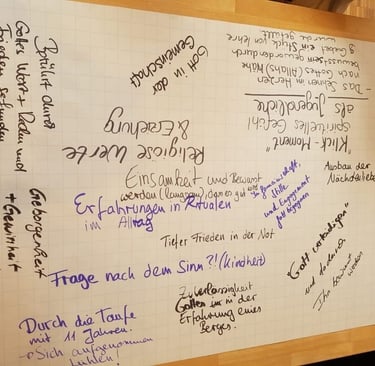 Gott in der
Gemeinschaft
- Das Sehnen im Herzen
nach Gottes (Allahs) Nähe
bewusst sein geworden durch
Gebet ein Stück von Leere
wurde gefüllt
"Klick-Moment"
spirituelles Gefühl
als Jugendliche
Religiöse Werte
& Erziehung
Berührt durch
Gottes Wort +
und
Frieden gefunden
Geborgenheit
+ Gewissheit
Einsamkeit und Bewusst
werden (langsam), dass er gut
Erfahrungen in Ritualen
im Alltag
In Gemeinschaft,
Stille
und Engagement
Gott begegnen
Ausbau der
Nächstenliebe
Tiefer Frieden in der Not
Frage nach dem Sinn?! (Kindheit)
"Gott verteidigen"
und dadurch
Ihn
werden
Zuverlässigkeit
Gottes in der
Erfahrung eines
Berges.
Durch die Taufe
mit 11 Jahren.
→ Sich aufgenommen
fühlen!